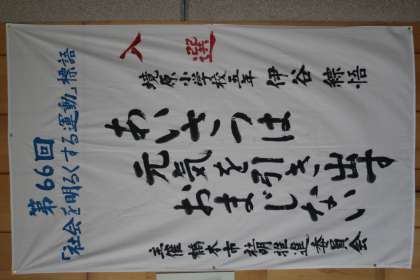 第66回
「社会を明るくする運動」標語
入選
境原小学校五年 伊谷 綜悟
あいさつは
元気を引き出す
おまじない
主催 橋本市社明推進委員会